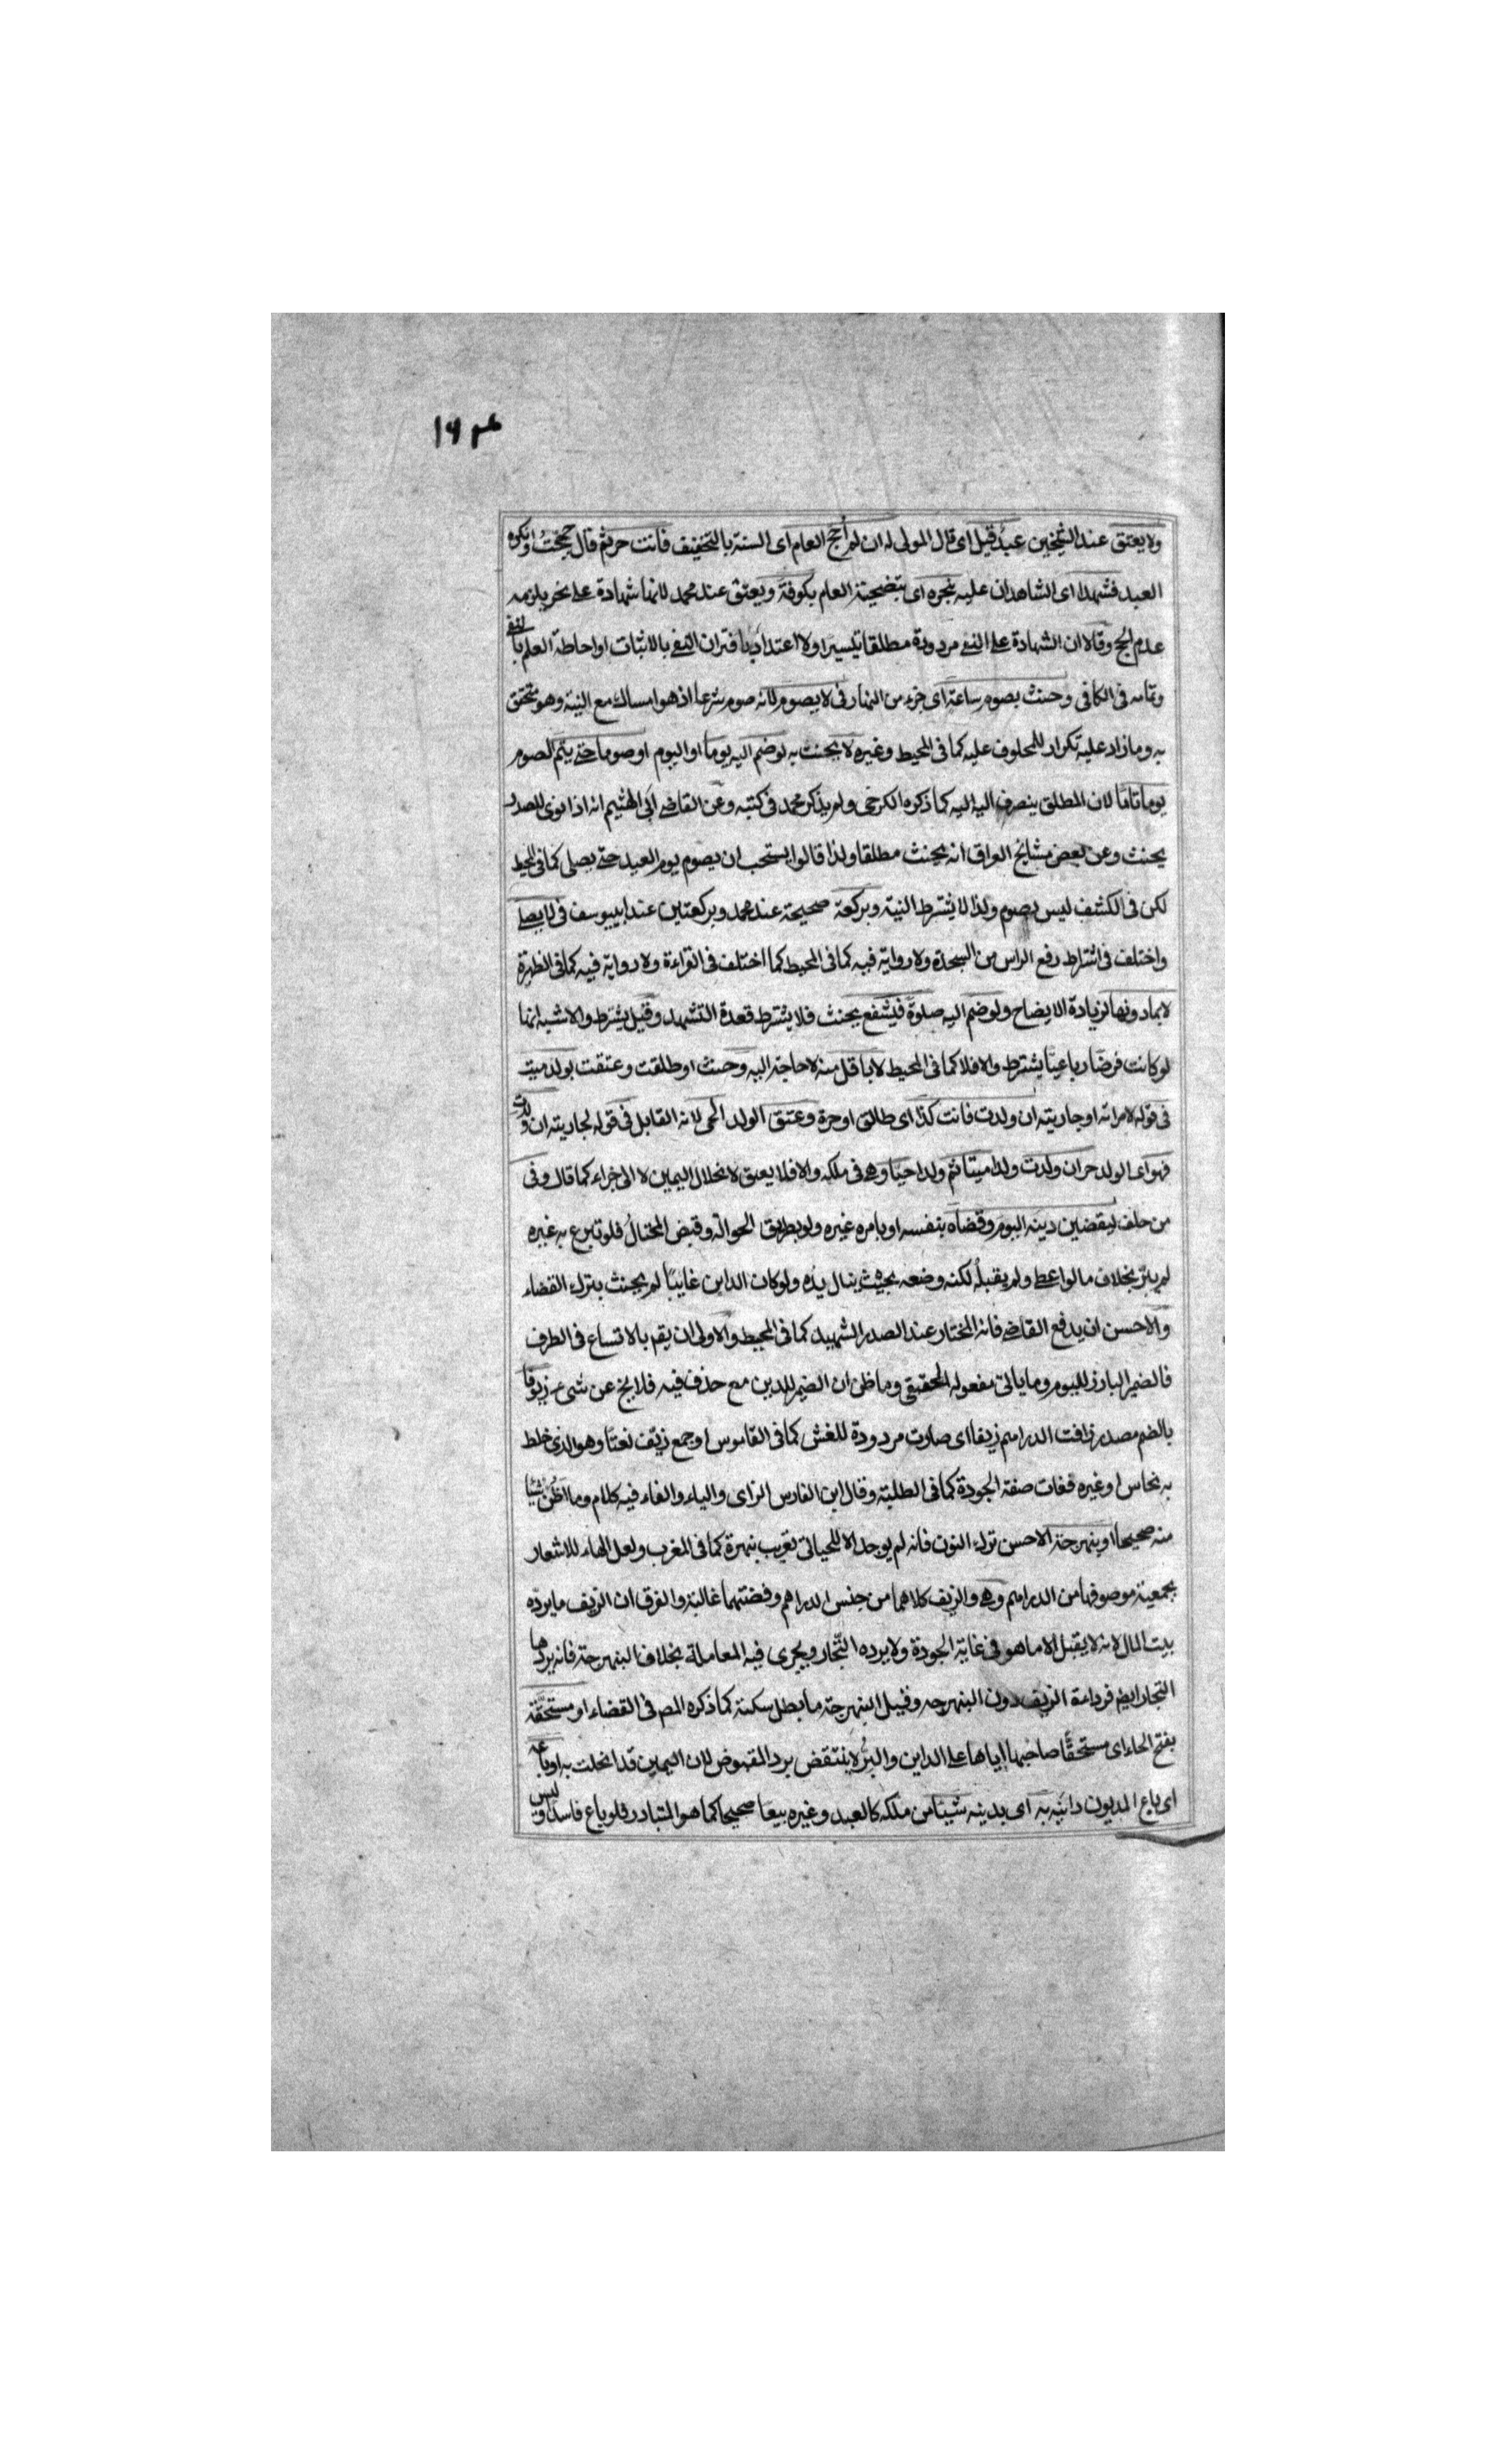 ١٦٣
ولا يعتق عند الشيخين عبد قيل اى قال المولى له ان لم أحج العام اى السنة بالتخفيف فانت حر ثم قال حججت وانكره
العبد فشهدا اى الشاهدان عليه بنحره اى بتضحيته العام بكوفة ويعتق عند محمد لانها شهادة على نحر يلزمه
عدم الحج وقالا ان الشهادة على النفى مردودة مطلقا تيسيرا ولا اعتداد باقتران النفى بالاثبات او احاطة العلم بالنفى
وتمامه فى الكافى وحنث بصوم ساعة اى جزء من النهار فى لا يصوم لانه صوم شرعا اذ هو امساك مع النية وهو متحقق
به وما زاد عليه تكرار للمحلوف عليه كما فى المحيط وغيره لا يحنث به لو ضم اليه يوما او اليوم او صوما حتى يتم الصوم
يوما تاما لان المطلق ينصرف اليه اليه كما ذكره الكرخى ولم يذكر محمد فى كتبه وعن القاضى ابى الهثيم انه اذا نوى للصدر
يحنث وعن بعض مشايخ العراق انه يحنث مطلقا ولذا قالوا يستحب ان يصوم يوم العيد حتى يصلى كما فى المحيط
لكن فى الكشف ليس بصوم ولذا لا يشترط النية وبركعة صحيحة عند محمد وبركعتين عند ابييوسف فى لا يصلى
واختلف فى اشتراط رفع الراس من السجدة ولا رواية فيه كما فى المحيط كما اختلف فى القراءة ولا رواية فيه كما فى الظهيرة
لا بما دونها لزيادة الايضاح ولو ضم اليه صلوة فبشفع يحنث فلا يشترط قعدة التشهد وقيل يشترط والاشبه انها
لو كانت فرضا رباعيا يشترط والا فلا كما فى المحيط لا باقل منه لا حاجة اليه وحنث او طلقت وعتقت بولد ميت
فى قوله لامراته او جاريته ان ولدت فانت كذا اى طالق او حرة وعتق الولد الحى لانه القابل فى قوله لجاريته ان ولدت
فهو اى الولد حر ان ولدت ولدا ميتا ثم ولدا حيا وهى فى ملكه والا فلا يعتق لانحلال اليمين لا الى جزاء كما قال وفى
من حلف ليقضين دينه اليوم وقضاه بنفسه او بامره غيره ولو بطريق الحوالة وقبض المحتال فلو تبرع به غيره
لم يبر بخلاف ما لو اعطى ولم يقبله لكنه وضعه بحيث ينال يده ولو كان الداين غايبا لم يحنث بترك القضاء
والاحسن ان يدفع القاضى فانه المختار عند الصدر الشهيد كما فى المحيط والاولى ان يقم بالاتساع فى الظرف
فالضمير البارز لليوم وما ياتى مفعوله الحقيقى وما ظن ان الضمير للدين مع حذف فيه فلا يخ عن شىء زيوفا
بالضم مصدر زافت الدراهم زيفا اى صارت مردودة للغش كما فى القاموس او جمع زيف نعتا وهو الذى خلط
به نحاس او غيره ففات صفة الجودة كما فى الطلبة وقال ابن الفارس الزاى والياء والفاء فيه كلام وما اظن شيئا
منه صحيحا او بنهرجة الاحسن ترك النون فانه لم يوجد الا للحيانى تعريب نبهرة كما فى المغرب ولعل الهاء للاشعار
بجمعية موصوفها من الدراهم وهى والزيف كلاهما من جنس الدراهم وفضتهما غالبة والفرق ان الزيف ما يرده
بيت المال لانه لا يقبل الا ما هو فى غاية الجودة ولا يرده التجار ويجرى فيه المعاملة بخلاف البنهرجة فانه يردها
التجار ايضم فرداءة الزيف دون البنهرجه وقيل البنهرجة ما بطل سكته كما ذكره المص فى القضاء او مستحقة
بفتح الحاء اى مستحقا صاحبها اياها على الداين والبر لا ينتقض برد المقبوض لان اليمين قد انحلت به او باعه
اى باع المديون داينه به اى بدينه شيئا من ملكه كالعبد وغيره بيعا صحيحا كما هو المتبادر فلو باع فاسدا وليس